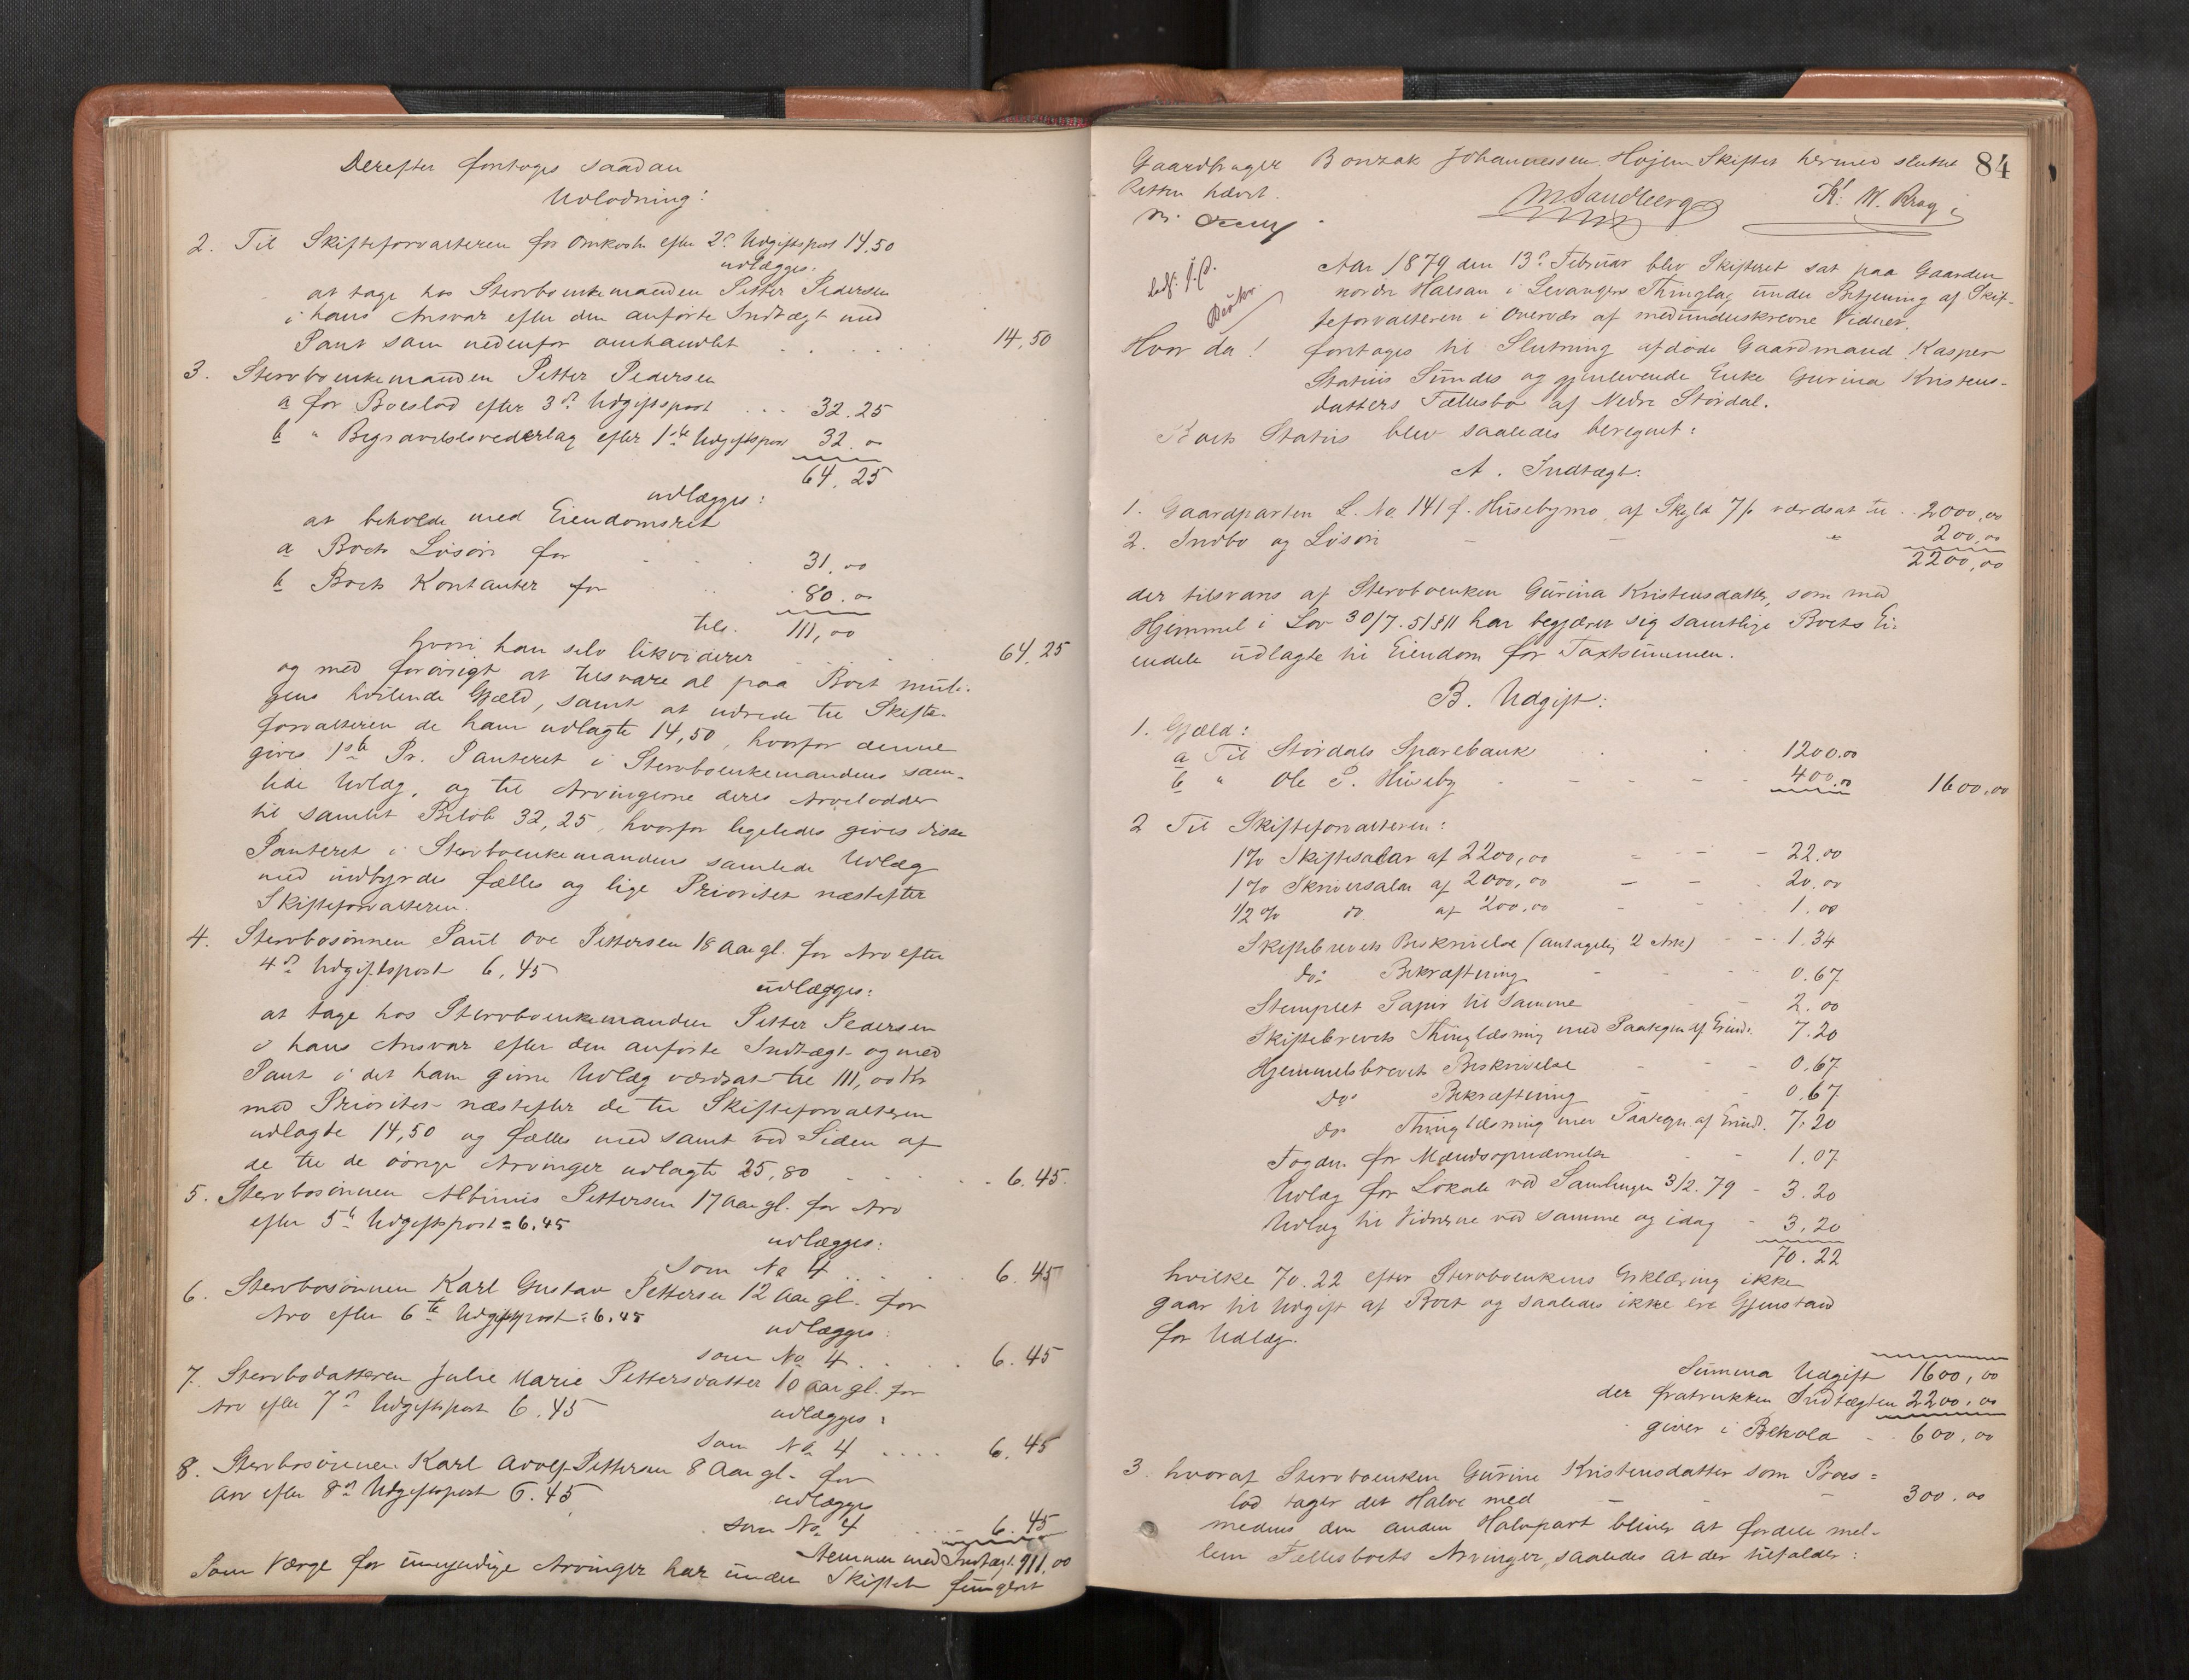 Derefter foretoges saadan
Udlodning:
2. Til Skifteforvalteren for Omkostn. efter 2n Udgiftspost 14.50
udlægges:
at tage hos Stervboenkemanden Petter Pedersen
i hans Ansvar efter den anførte Indtægt med
Pant som nedenfor omhandlet . . . . . 14,50
3. Stervboenkemanden Petter Pedersen
a for Boeslod efter 3die Udgiftspost . . . 32.25
b " Begravelsesvederlag efter 1ste Udgiftspost 32.00
64.25
udlægges:
at beholde med Eiendomsret
a Boets Løsøre for . . . 31.00
b Boets Kontanter for . . 80.00
tils. 111,00
hvori han selv likviderer . . . . 64,25
og med forøvrigt at tilsvare al paa Boet muli-
gens hvilende Gjæld, samt at udrede til Skifte-
forvalteren de ham udlagte 14,50, hvorfor denne
gives 1ste Pr. Panteret i Stervboenkemandens sam-
lede Udlæg, og til Arvingerne deres Arvelodder
til samlet Beløb 32,25, hvorfor ligeledes gives disse
Panteret i Stervboenkemandens samlede Udlæg
med indbyrdes fælles og lige Prioritet næstefter
Skifteforvalteren.
4. Stervbosønnen Paul Ove Pettersen 18 Aar gl. for Arv efter
4de Udgiftspost 6,45
udlægges:
at tage hos Stervboenkemanden Petter Pedersen
i hans Ansvar efter den anførte Indtægt og med
Pant i det ham givne Udlæg værdsat til 111,00 Kr
med Prioritet næstefter de til Skifteforvalteren
udlagte 14,50 og fælles med samt ved Siden af
de til de øvrige Arvinger udlagte 25,80 . . . . 6.45.
5. Stervbosønnen Albinus Pettersen 17 Aar gl. for Arv
efter 5te Udgiftspost = 6.45
udlægges:
som No 4 . . . . 6.45
6. Stervbosønnen Karl Gustav Pettersen 12 Aar gl. for
Arv efter 6te Udgiftspost = 6.45
udlægges:
som No 4 . . . . 6.45
7. Stervbodatteren Julie Marie Pettersdatter 10 Aar gl. for
Arv efter 7de Udgiftspost 6.45
udlægges:
som No 4 . . . . 6.45
8. Stervbosønnen Karl Adolf Pettersen 8 Aar gl. for
Arv efter 8de Udgiftspost 6.45
udlægges
som No 4 . . . 6.45
Stemmer med Indtægt. 111,00
Som Værge for umyndige Arvinger har under Skiftet fungeret
84
Gaardbruger Bonzak Johannessen Hojem Skiftet hermed sluttet
Retten hævet.
M Sandberg K. W. Krag
Aar 1879 den 13de Februar blev Skifteret sat paa Gaarden
nordre Halsan i Levangers Thinglag under Betjening af Skif-
teforvalteren i Overvær af medunderskrevne Vidner.
Hvor da! foretoges til Slutning afdøde Gaardmand Kasper
Statius Sundes og gjenlevende Enke Gurina Kristens-
datters Fællesbo af Nedre Størdal.
Boets Status blev saaledes beregnet:
A. Indtægt:
1. Gaardparten L. No. 141 f. Husebymo, af Skyld 7 ß værdsat til . . 2000,00
2. Indbo og Løsøre - - " 200,00
2200,00
der tilsvares af Stervboenken Gurina Kristensdatter, som med
Hjemmel i Lov 30/7.51 § 11 har begjæret sig samtlige Boets Ei-
endele udlagte til Eiendom for Taxtsummen.
B. Udgift:
1. Gjæld:
a Til Størdals Sparebank . . . 1200.00
b " Ole P. Huseby - - - - 400.00 1600.00
2 Til Skifteforvalteren:
1% Skiftesalar af 2200,00 - - - 22.00
1% Skriversalar af 2000,00 - - . 20.00
1/2 % do af 200,00 - - 1.00
Skiftebrevets Beskrivelse (antagelig 2 Ark) - - 1.34
do: Bekræftning - - - 0.67
Stemplet Papir til samme - - 2.00
Skiftebrevets Thinglæsning med Paategn. af Grund. 7.20
Hjemmelsbrevets Beskrivelse - - - 0.67
Do: Bekræftning - - 0.67
Do: Thinglæsning med Paategn. af Grund. 7.20
Fogden for Mændsopnævnelse - - 1.07
Udlæg for Lokale ved Samlingen 3/2.79 - 3.20
Udlæg til Vidnerne ved samme og idag - 3.20
70.22
hvilke 70.22 efter Stervboenkens Erklæring ikke
gaar til Udgift af Boet og saaledes ikke ere Gjenstand
for Udlæg.
Summa Udgift 1600,00
der fratrukken Indtægten 2200.00
giver i Behold - . 600,00
3. hvoraf Stervboenken Gurine Kristensdatter som Boes=
lod tager det Halve med - - - 300.00
medens den anden Halvpart bliver at fordele mel-
lem Fellesboets Arvinger, saaledes at der tilfalder: